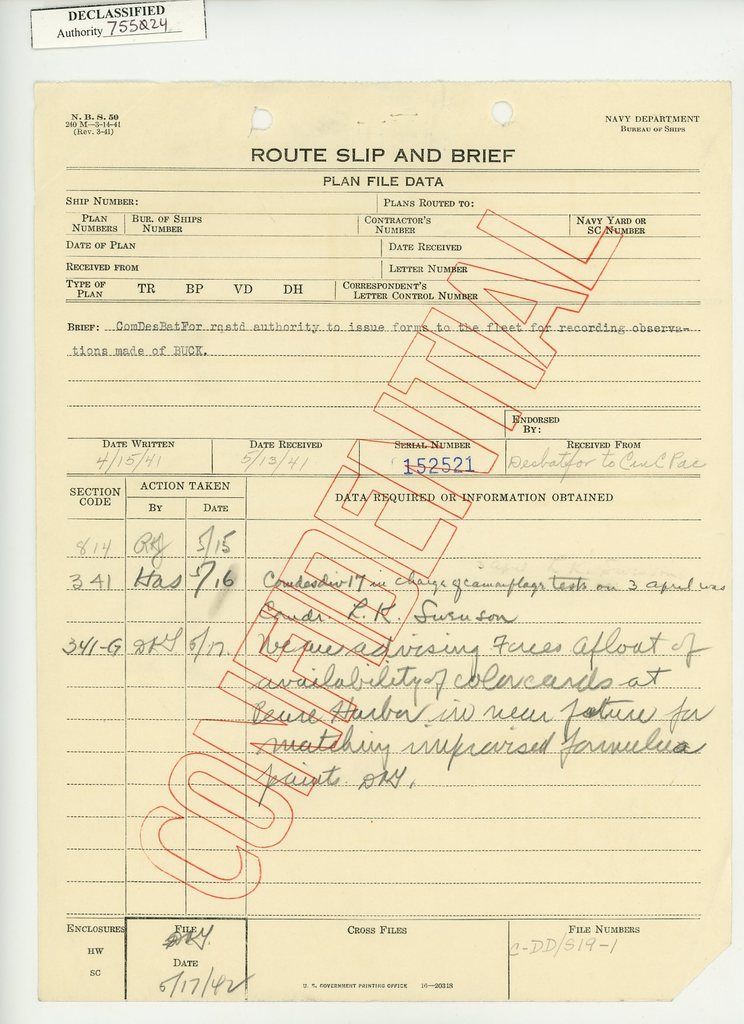 DECLASSIFIED
Authority 755024
N. B. S. 50
240 M—3-14-41
(Rev. 3-41)
NAVY DEPARTMENT
BUREAU OF SHIPS
ROUTE SLIP AND BRIEF
PLAN FILE DATA
SHIP NUMBER:
PLANS ROUTED TO:
PLAN NUMBERS
BUR. OF SHIPS NUMBER
CONTRACTOR'S NUMBER
NAVY YARD OR SC NUMBER
DATE OF PLAN
DATE RECEIVED
RECEIVED FROM
LETTER NUMBER
TYPE OF PLAN TR BP VD DH
CORRESPONDENT'S LETTER CONTROL NUMBER
BRIEF: ComDesBatFor rqstd authority to issue forms to the fleet for recording observa-
tions made of BUCK.
CONFIDENTIAL
ENDORSED BY:
DATE WRITTEN
DATE RECEIVED
SERIAL NUMBER
RECEIVED FROM
4/15/41
5/13/41
152521
Desbatfor to CinC Pac
SECTION CODE
ACTION TAKEN
BY
DATE
DATA REQUIRED OR INFORMATION OBTAINED
814 5/15
341 Has 5/16 Comdesdiv 17 in charge of camouflage tests on 3 april was
Comdr. L. K. Swenson
341-G DRY 5/17 We are advising Forces Afloat of
availability of color cards at
Pearl Harbor in near future for
matching improvised formulea
paints. DRY.
ENCLOSURES
HW
SC
FILE
DRY.
DATE
5/17/42
CROSS FILES
FILE NUMBERS
C-DD/S19-1
U. S. GOVERNMENT PRINTING OFFICE 16—20318